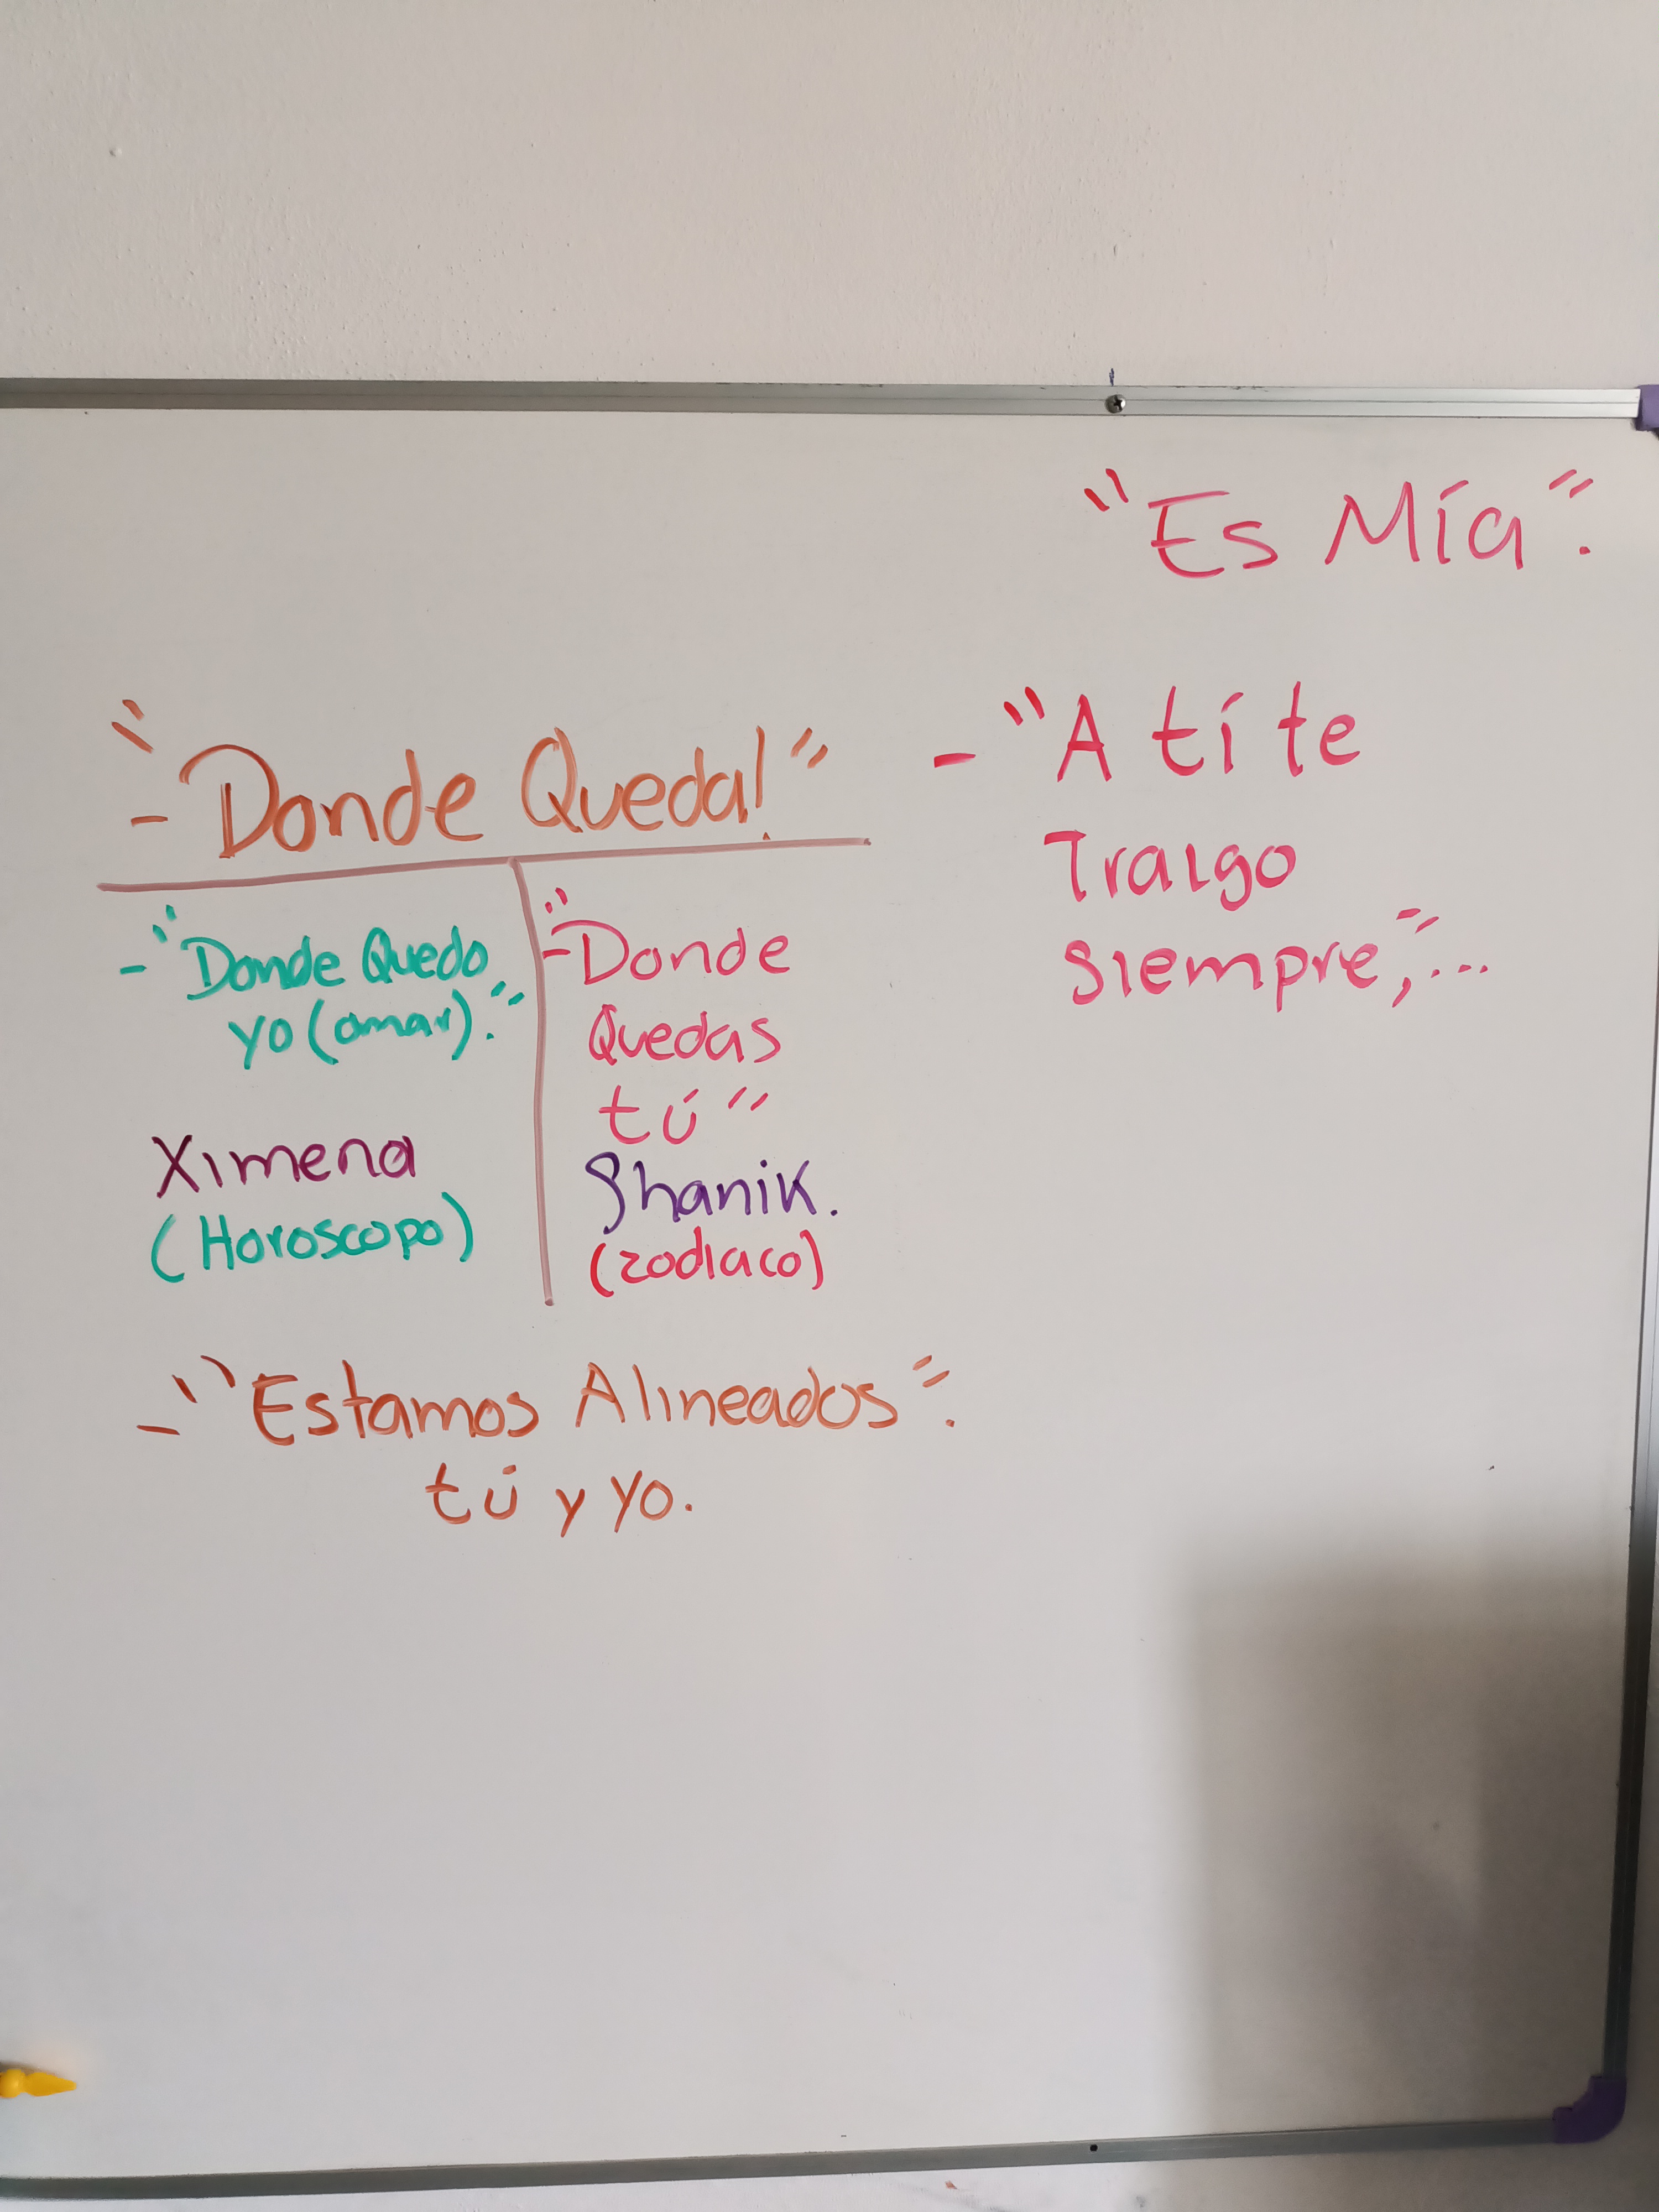 "Es Mía".
- "A tí te
Traigo
siempre,"...
- "Donde Queda!"
- "Donde Quedo
yo (amar)."
Ximena
(Horoscopo)
- "Donde
Quedas
tú"
Shanik.
(zodiaco)
- "Estamos Alineados".
tú y yo.